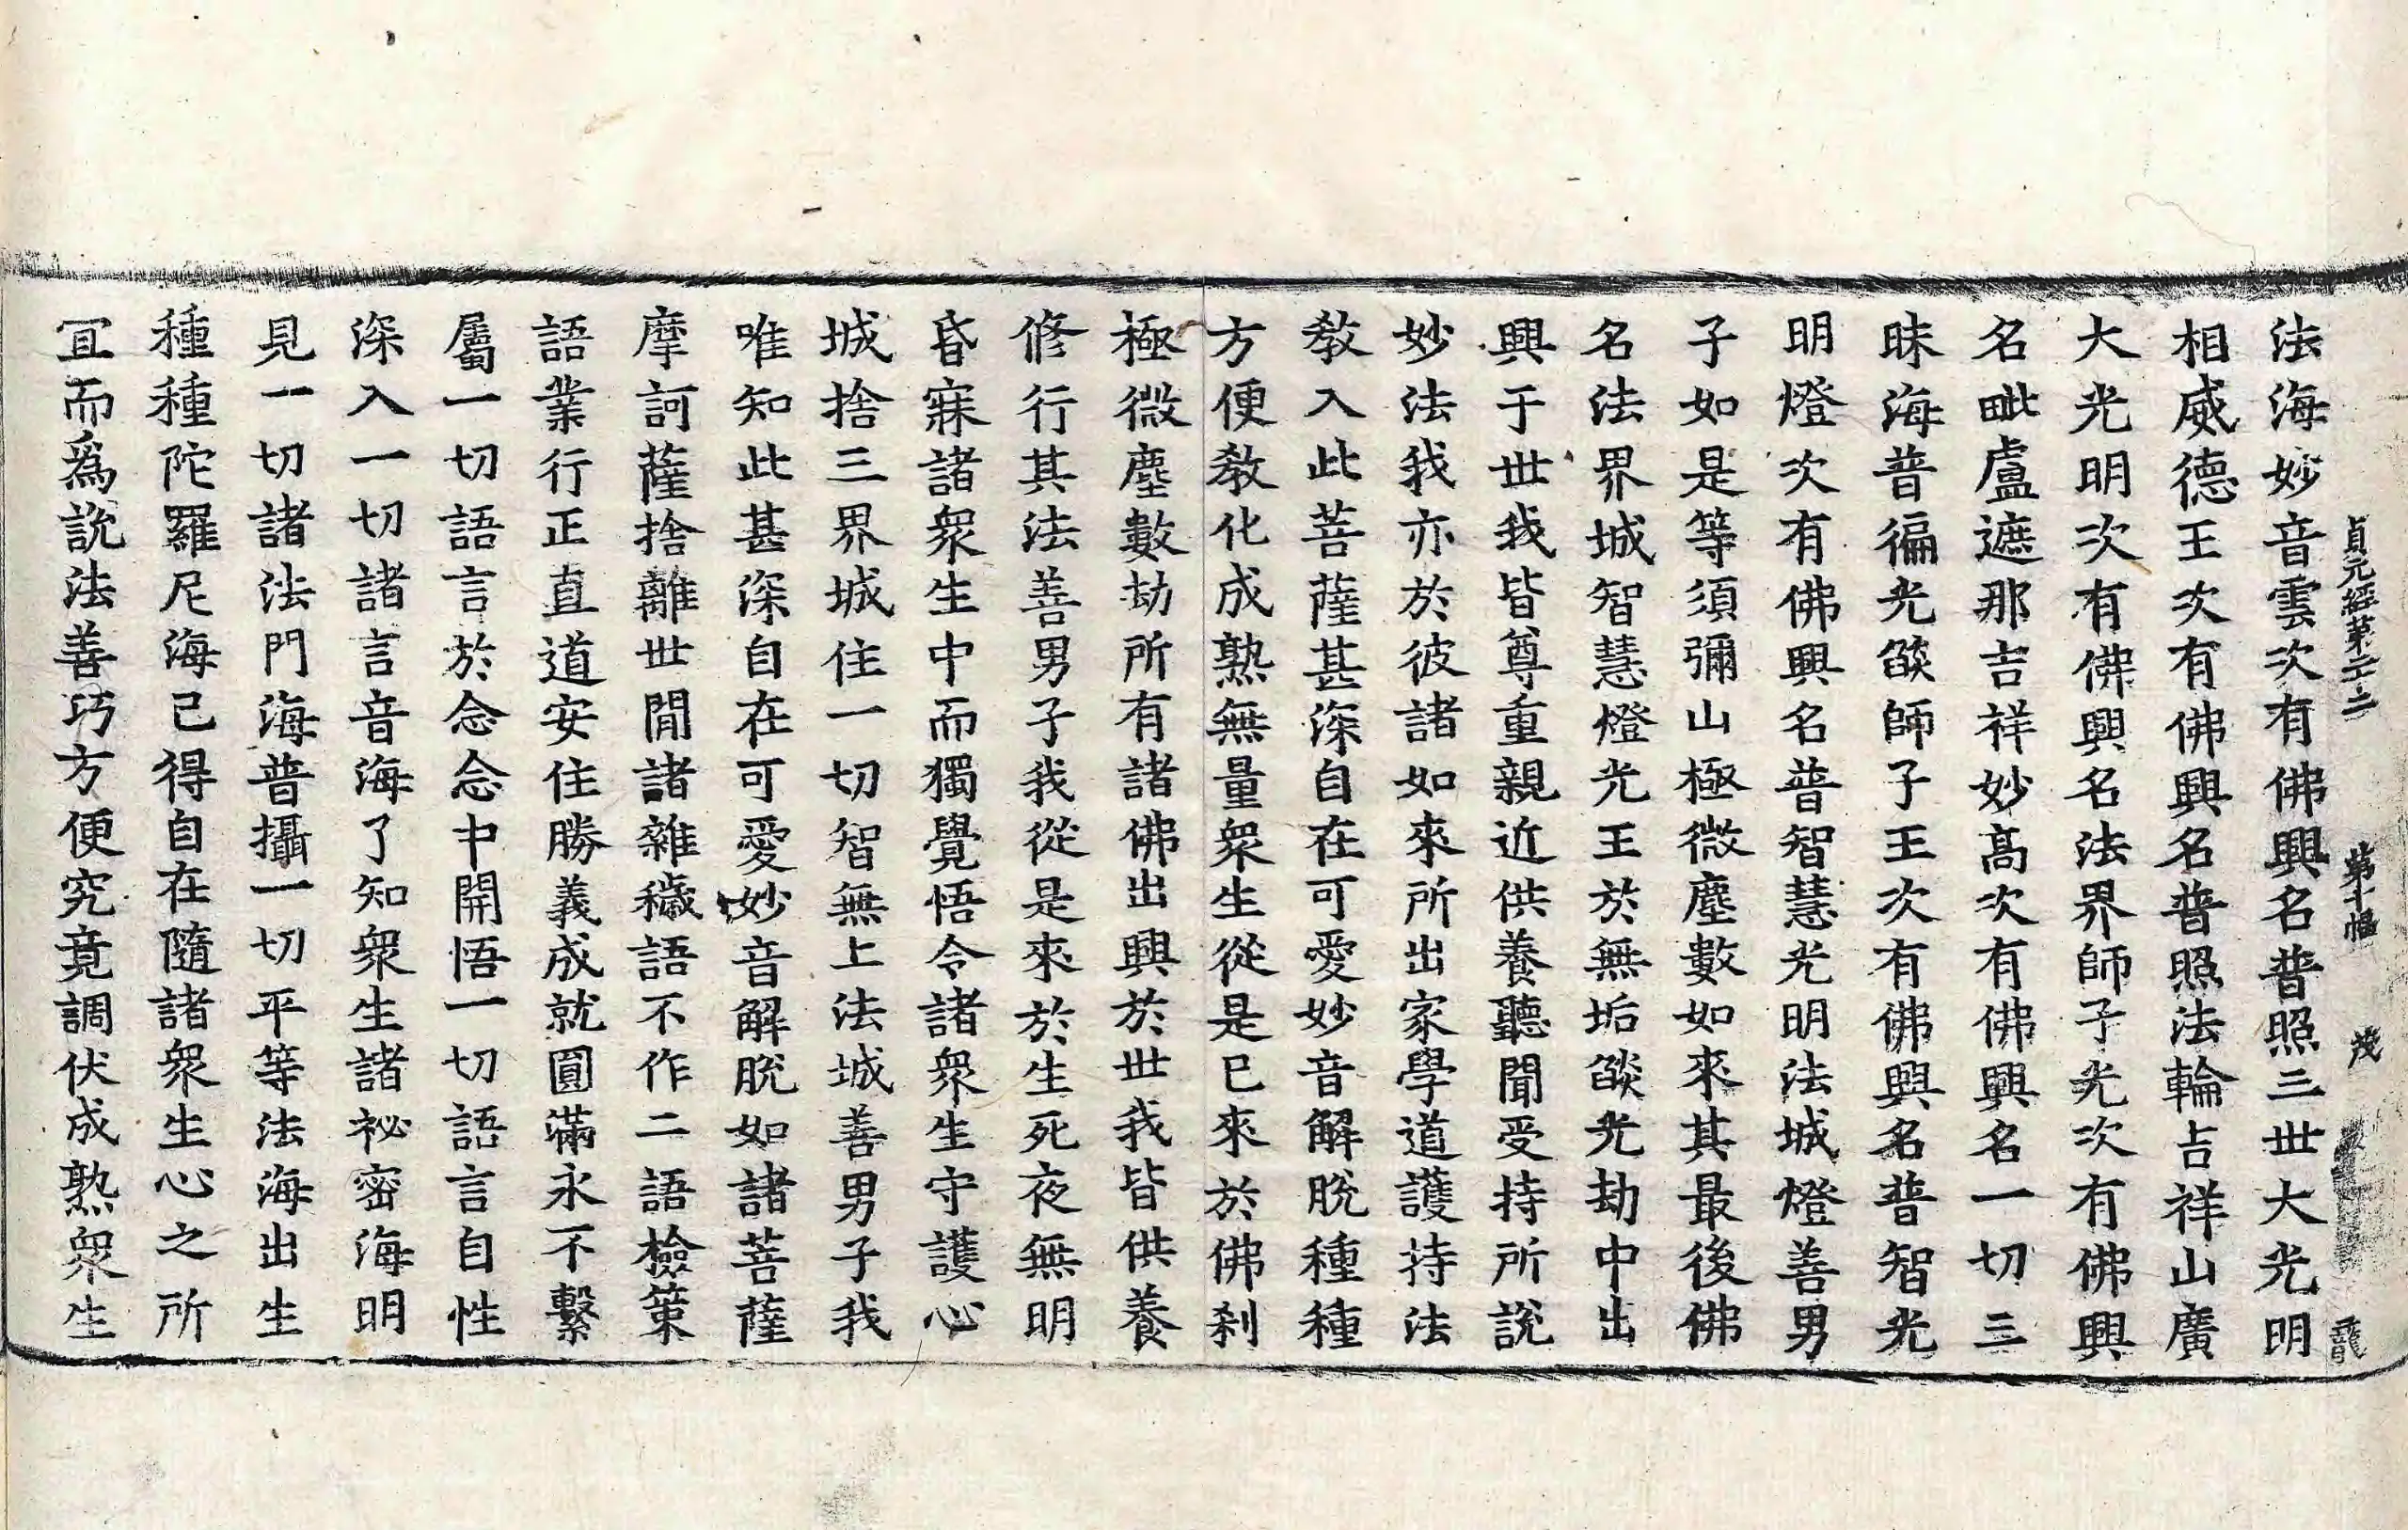 貞元經第二十二 第十幅 茂 龍
法海妙音雲次有佛興名普照三世大光明
相威德王次有佛興名普照法輪吉祥山廣
大光明次有佛興名法界師子光次有佛興
名毗盧遮那吉祥妙高次有佛興名一切三
昧海普徧光燄師子王次有佛興名普智光
明燈次有佛興名普智慧光明法城燈善男
子如是等須彌山極微塵數如來其最後佛
名法界城智慧燈光王於無垢燄光劫中出
興于世我皆尊重親近供養聽聞受持所說
妙法我亦於彼諸如來所出家學道護持法
教入此菩薩甚深自在可愛妙音解脫種種
方便教化成熟無量衆生從是已來於佛刹
極微塵數劫所有諸佛出興於世我皆供養
修行其法善男子我從是來於生死夜無明
昏寐諸衆生中而獨覺悟令諸衆生守護心
城捨三界城住一切智無上法城善男子我
唯知此甚深自在可愛妙音解脫如諸菩薩
摩訶薩捨離世閒諸雜穢語不作二語檢策
語業行正直道安住勝義成就圓滿永不繫
屬一切語言於念念中開悟一切語言自性
深入一切諸言音海了知衆生諸祕密海明
見一切諸法門海普攝一切平等法海出生
種種陀羅尼海已得自在隨諸衆生心之所
冝而爲說法善巧方便究竟調伏成熟衆生